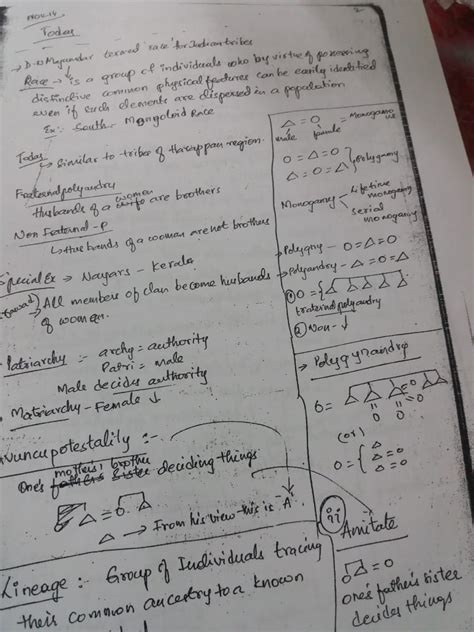 Todas
→ D-N Majumdar termed 'race' for Indian tribes
Race → is a group of individuals who by virtue of possessing
distinctive common physical features can be easily identified
even if such elements are dispersed in a population.
Ex: South- Mongoloid Race
Todas
↳ Similar to tribes of Harappan region.
Fraternal polyandry
women
Husbands of a wife are brothers
Non Fraternal - P
↳ Husbands of a woman are not brothers
Special Ex → Nayars - Kerala
→ All members of clan become husbands
of woman.
Patriarchy :- archy = authority
Patri = male
Male decides authority
Matriarchy - Female ↓
Avuncupotestality :-
mother's brother
One's father's sister deciding things
→ From his view this is 'A'
Lineage : Group of Individuals tracing
their common ancestry to a known
2
△ = O = Monogamous
male
O = △ = O
△ = O = △
Polygamy
Monogamy
Lifetime
monogamy
serial
monogamy
→ Polygny - O = △ = O
→ Polyandry - △ = O = △
① O = { △ △ △ △ △
fraternal polyandry
② Non - ↓
→ Polygynandry
O = △ △ △ △ = O
(or)
O = { △ △ = O △ = O
(ii)
Amitate
△ = O
one's father's sister
decides things